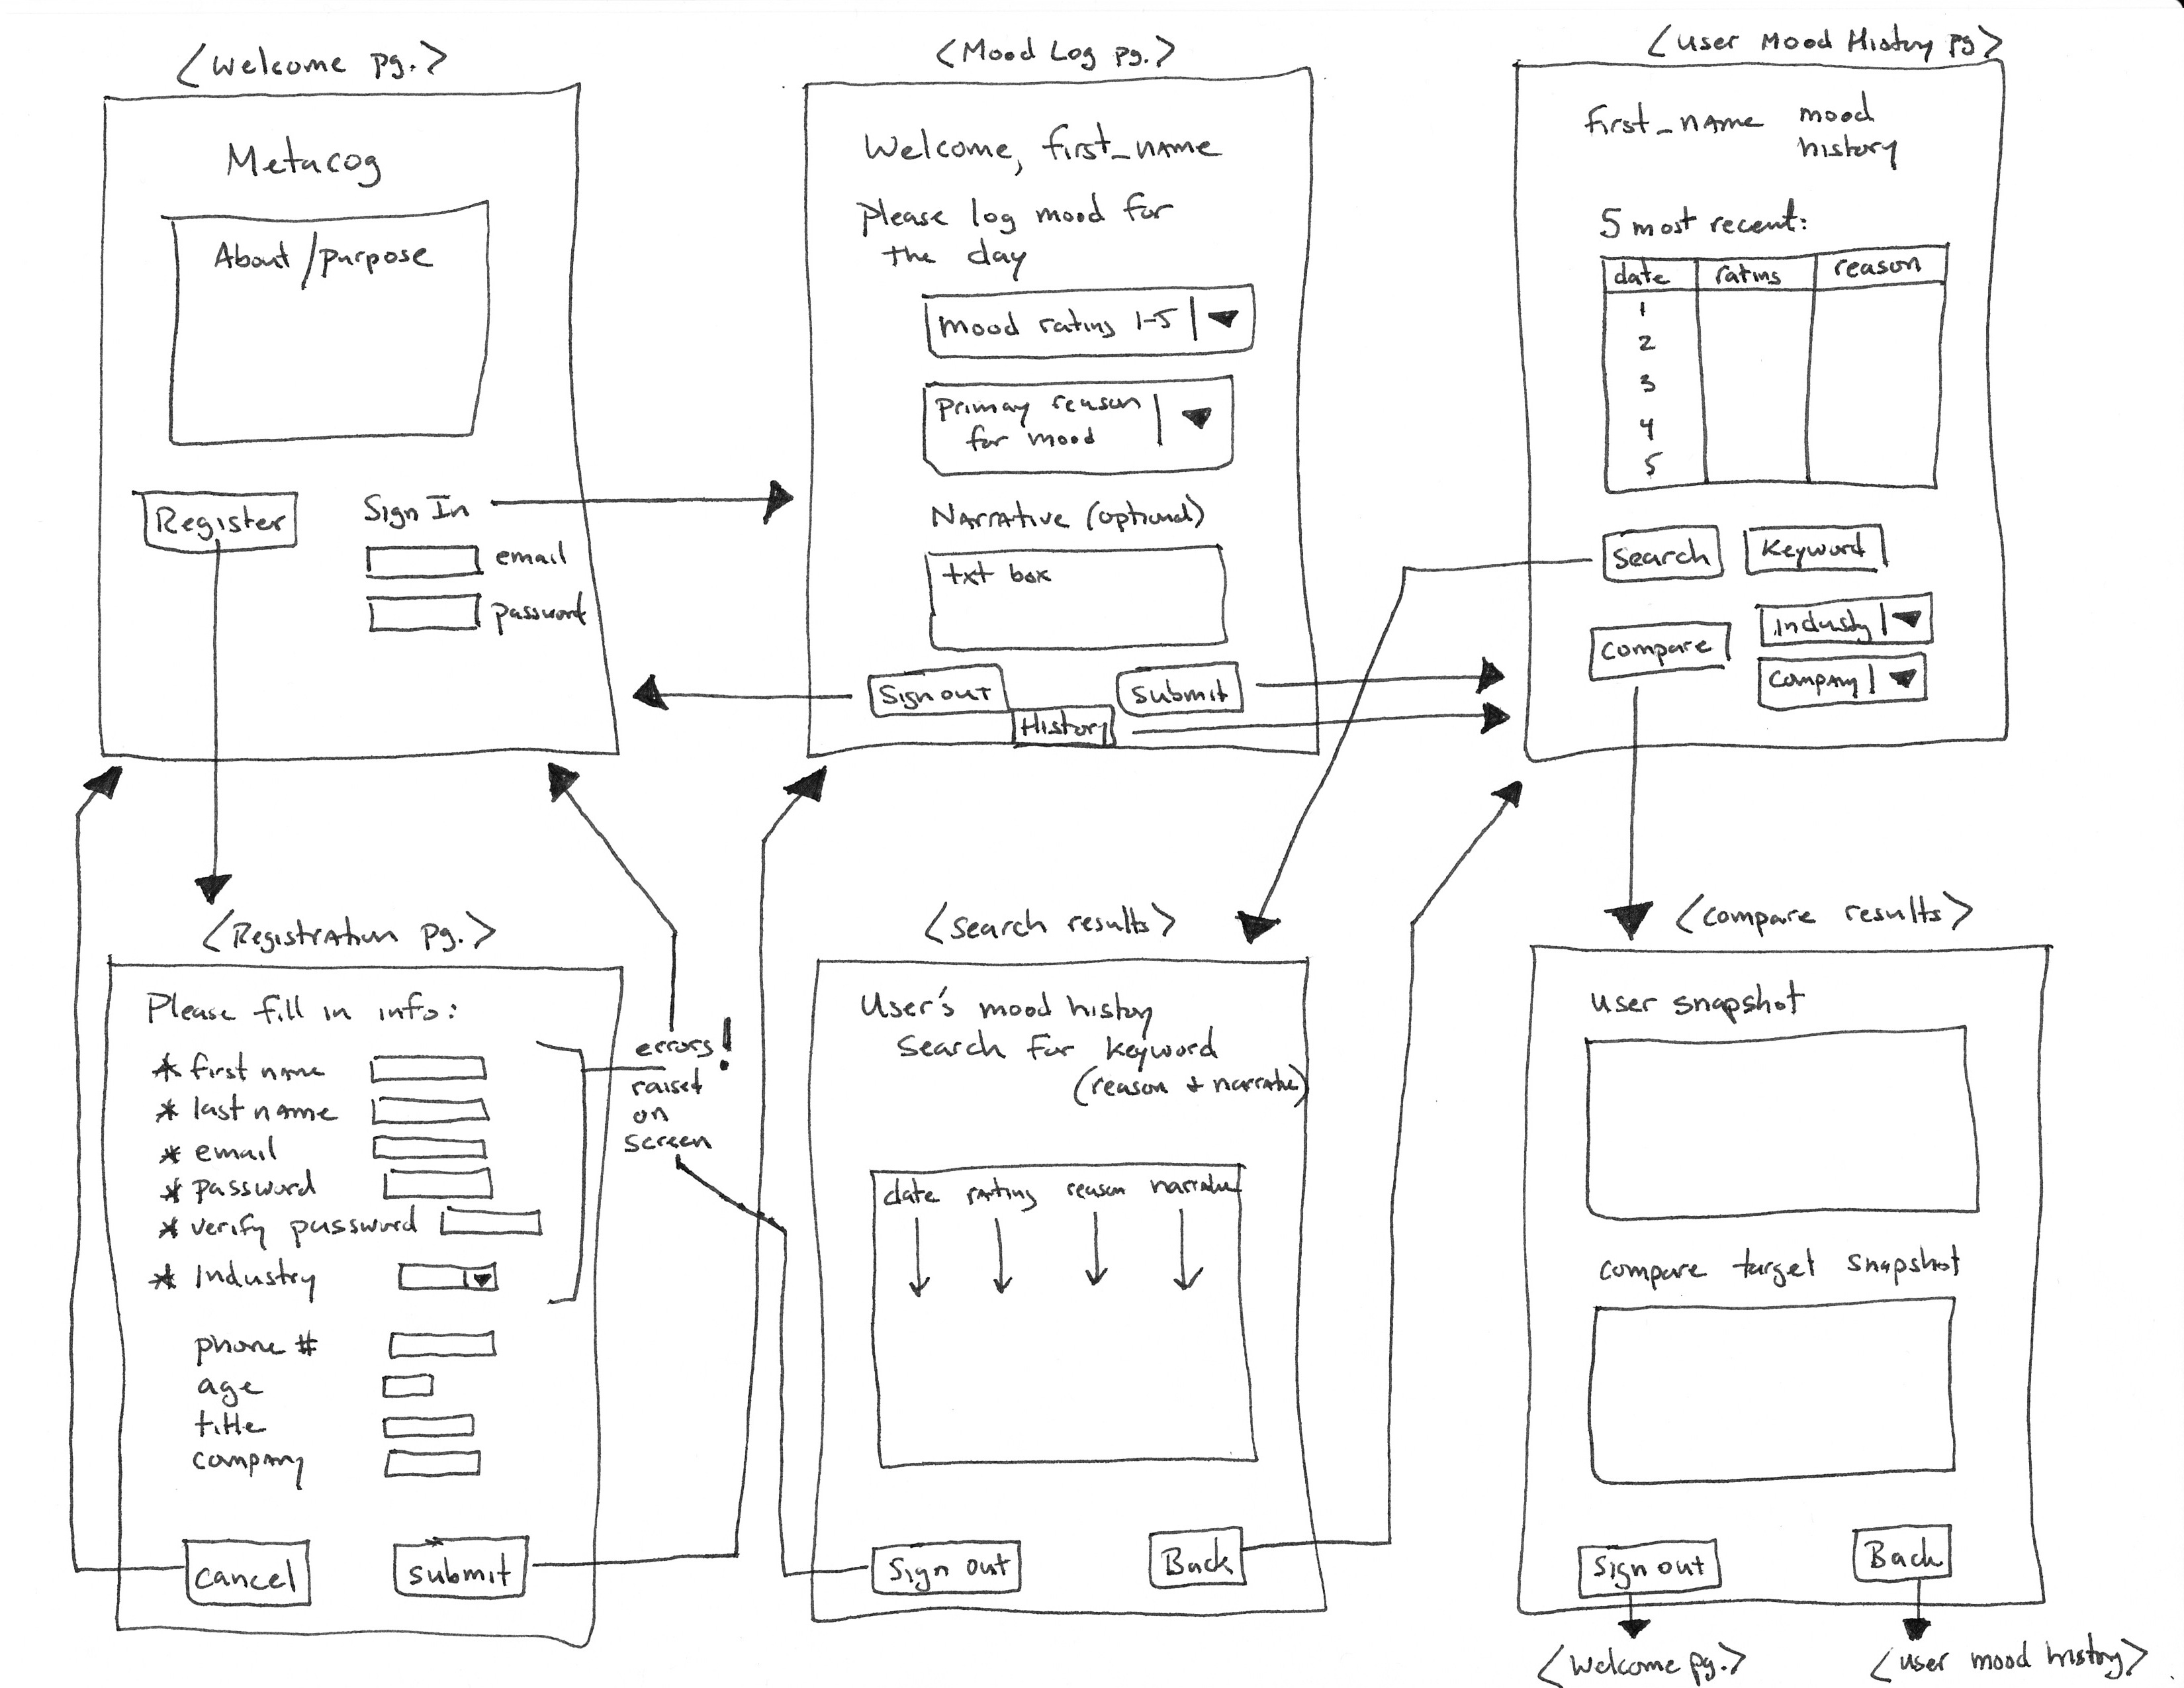 <Welcome pg.>
Metacog
About/purpose
Register
Sign In
email
password
<Mood Log pg.>
Welcome, first_name
Please log mood for
the day
mood rating 1-5
primary reason
for mood
Narrative (optional)
txt box
Sign out
Submit
History
<User Mood History pg>
first_name mood
history
5 most recent:
date rating reason
1
2
3
4
5
Search
Keyword
Compare
Industry
Company
<Registration pg.>
Please fill in info:
* first name
* last name
* email
* password
* verify password
* Industry
phone #
age
title
company
Cancel
Submit
errors!
raised
on
screen
<Search results>
User's mood history
Search for Keyword
(reason + narrative)
date rating reason narrative
Sign out
Back
<Compare results>
User snapshot
Compare target snapshot
Sign out
Back
<Welcome pg.>
<User mood history>